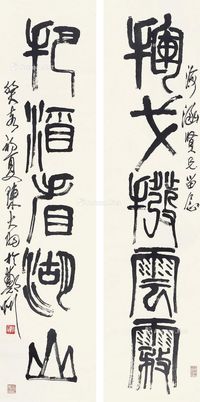 揮戈撥雲霧
涵賢兄留念
把酒看湖山
癸亥初夏陳天然於鄭州